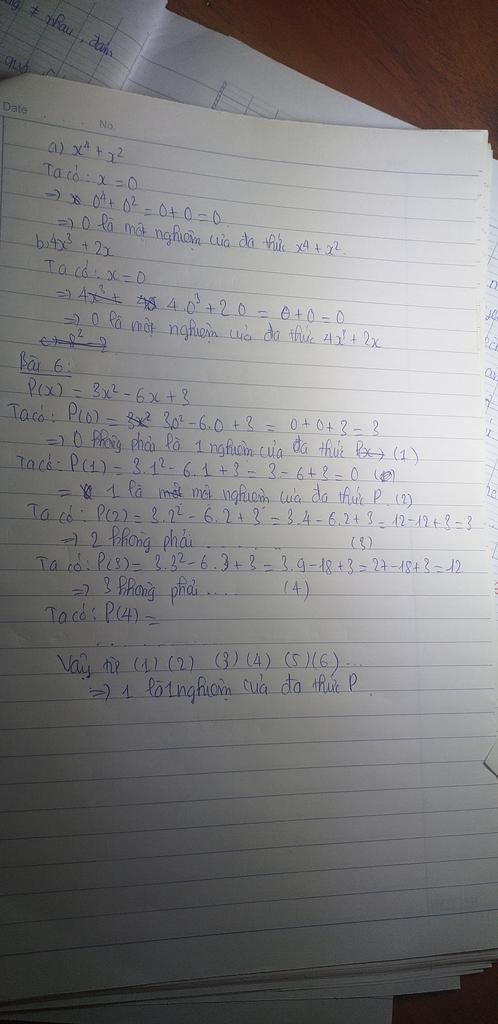 ≠ nhau, đám
quả
Date No
a) x⁴ + x²
Ta có: x = 0
=> 0⁴ + 0² = 0 + 0 = 0
=> 0 là một nghiệm của đa thức x⁴ + x².
b. 4x³ + 2x
Ta có: x = 0
=> 4x³ + 4.0³ + 2.0 = 0 + 0 = 0
=> 0 là một nghiệm của đa thức 4x³ + 2x
Bài 6:
P(x) = 3x² - 6x + 3
Ta có: P(0) = 3x² 3.0² - 6.0 + 3 = 0 + 0 + 3 = 3
=> 0 không phải là 1 nghiệm của đa thức P(x) (1)
Ta có: P(1) = 3.1² - 6.1 + 3 = 3 - 6 + 3 = 0
= 1 là một một nghiệm của đa thức P. (2)
Ta có: P(2) = 3.2² - 6.2 + 3 = 3.4 - 6.2 + 3 = 12 - 12 + 3 = 3
=> 2 không phải ............ (3)
Ta có: P(3) = 3.3² - 6.3 + 3 = 3.9 - 18 + 3 = 27 - 18 + 3 = 12
=> 3 không phải .... (4)
Ta có: P(4) =
............
Vậy từ (1) (2) (3) (4) (5) (6) ...
=> 1 là 1 nghiệm của đa thức P.